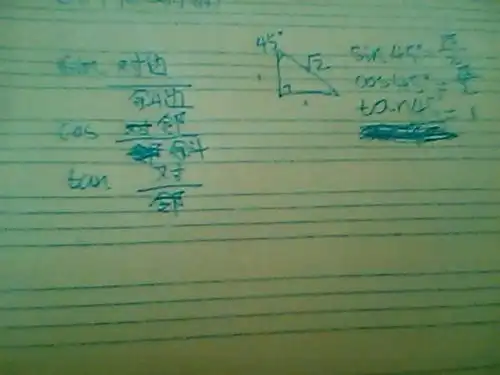 sin 对边
斜边
cos 邻
斜
tan 对
邻
45°
√2
1
1
sin 45° = √2/2
cos 45° = √2/2
tan 45° = 1